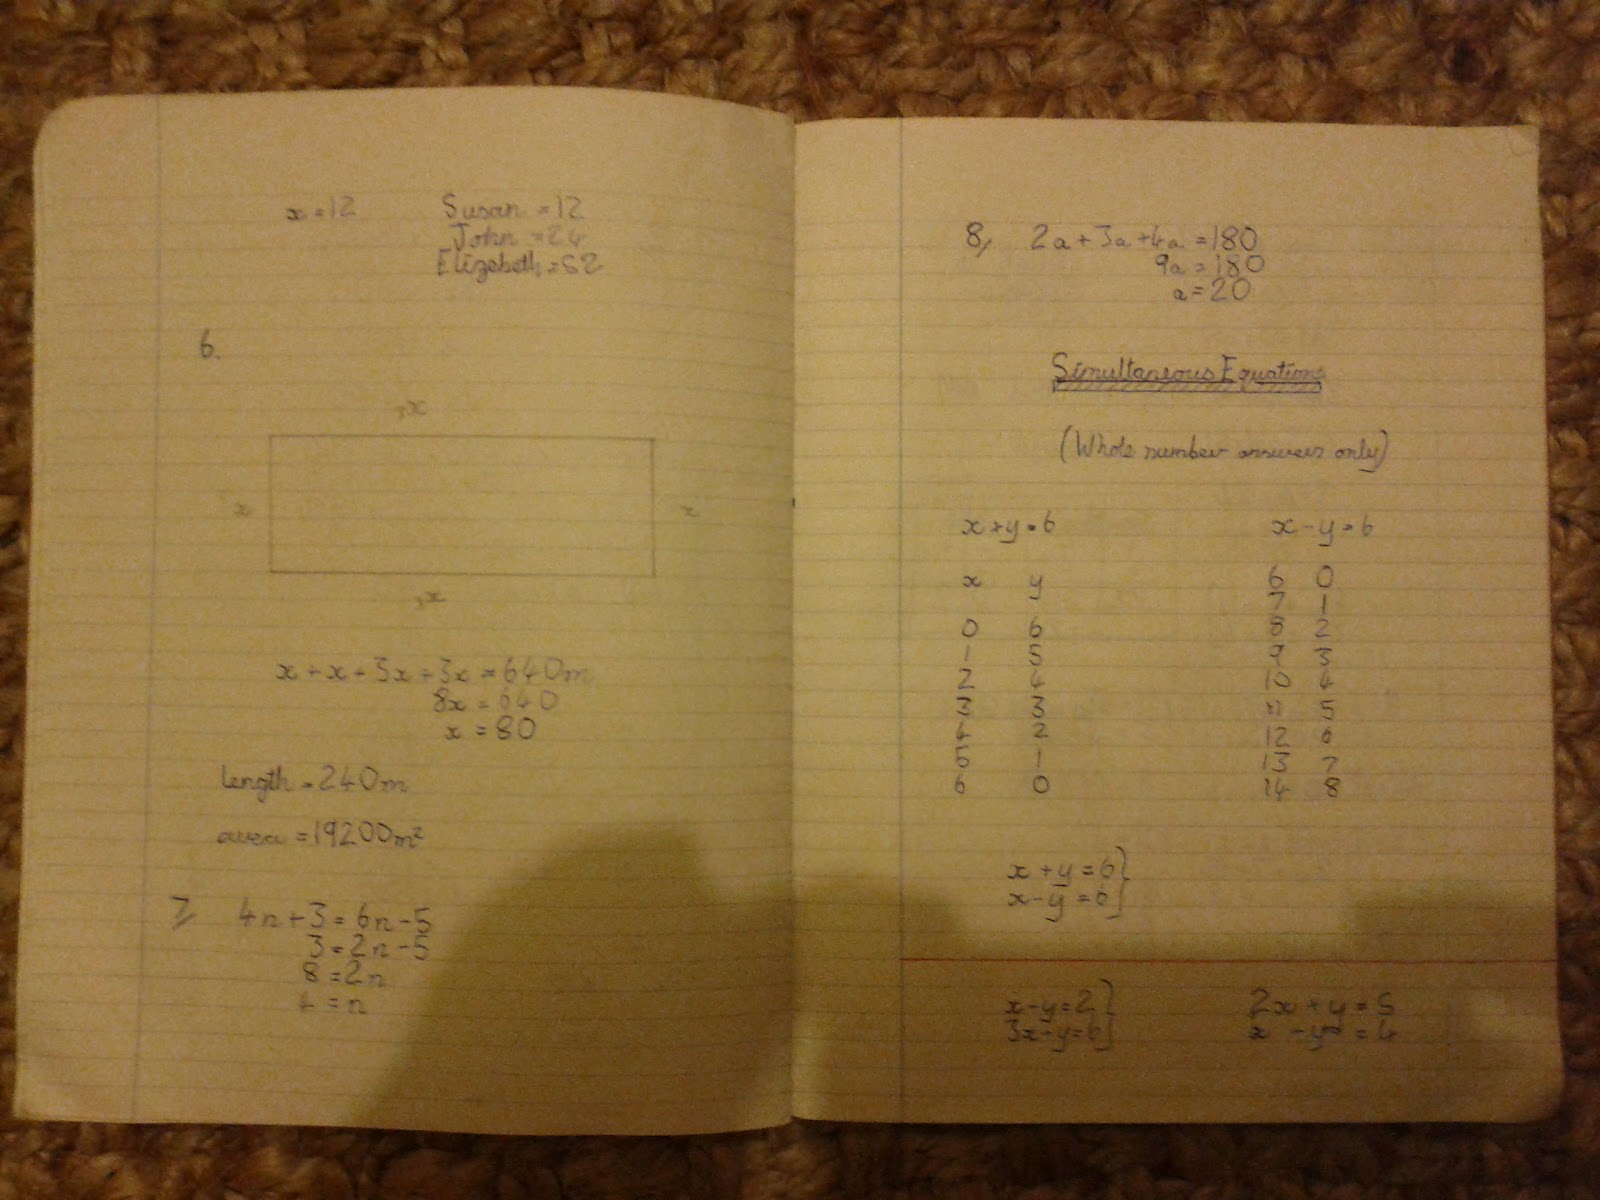 x = 12 Susan = 12
John = 24
Elizebeth = 52
6.
3x
x x
3x
x + x + 3x + 3x = 640m
8x = 640
x = 80
length = 240m
area = 19200m²
7, 4n + 3 = 6n - 5
3 = 2n - 5
8 = 2n
4 = n
8, 2a + 3a + 4a = 180
9a = 180
a = 20
Simultaneous Equations
(Whole number answers only)
x + y = 6 x - y = 6
x y 6 0
7 1
0 6 8 2
1 5 9 3
2 4 10 4
3 3 11 5
4 2 12 6
5 1 13 7
6 0 14 8
x + y = 6 }
x - y = 6 }
x - y = 2 } 2x + y = 5
3x - y = 6 } x - y = 4